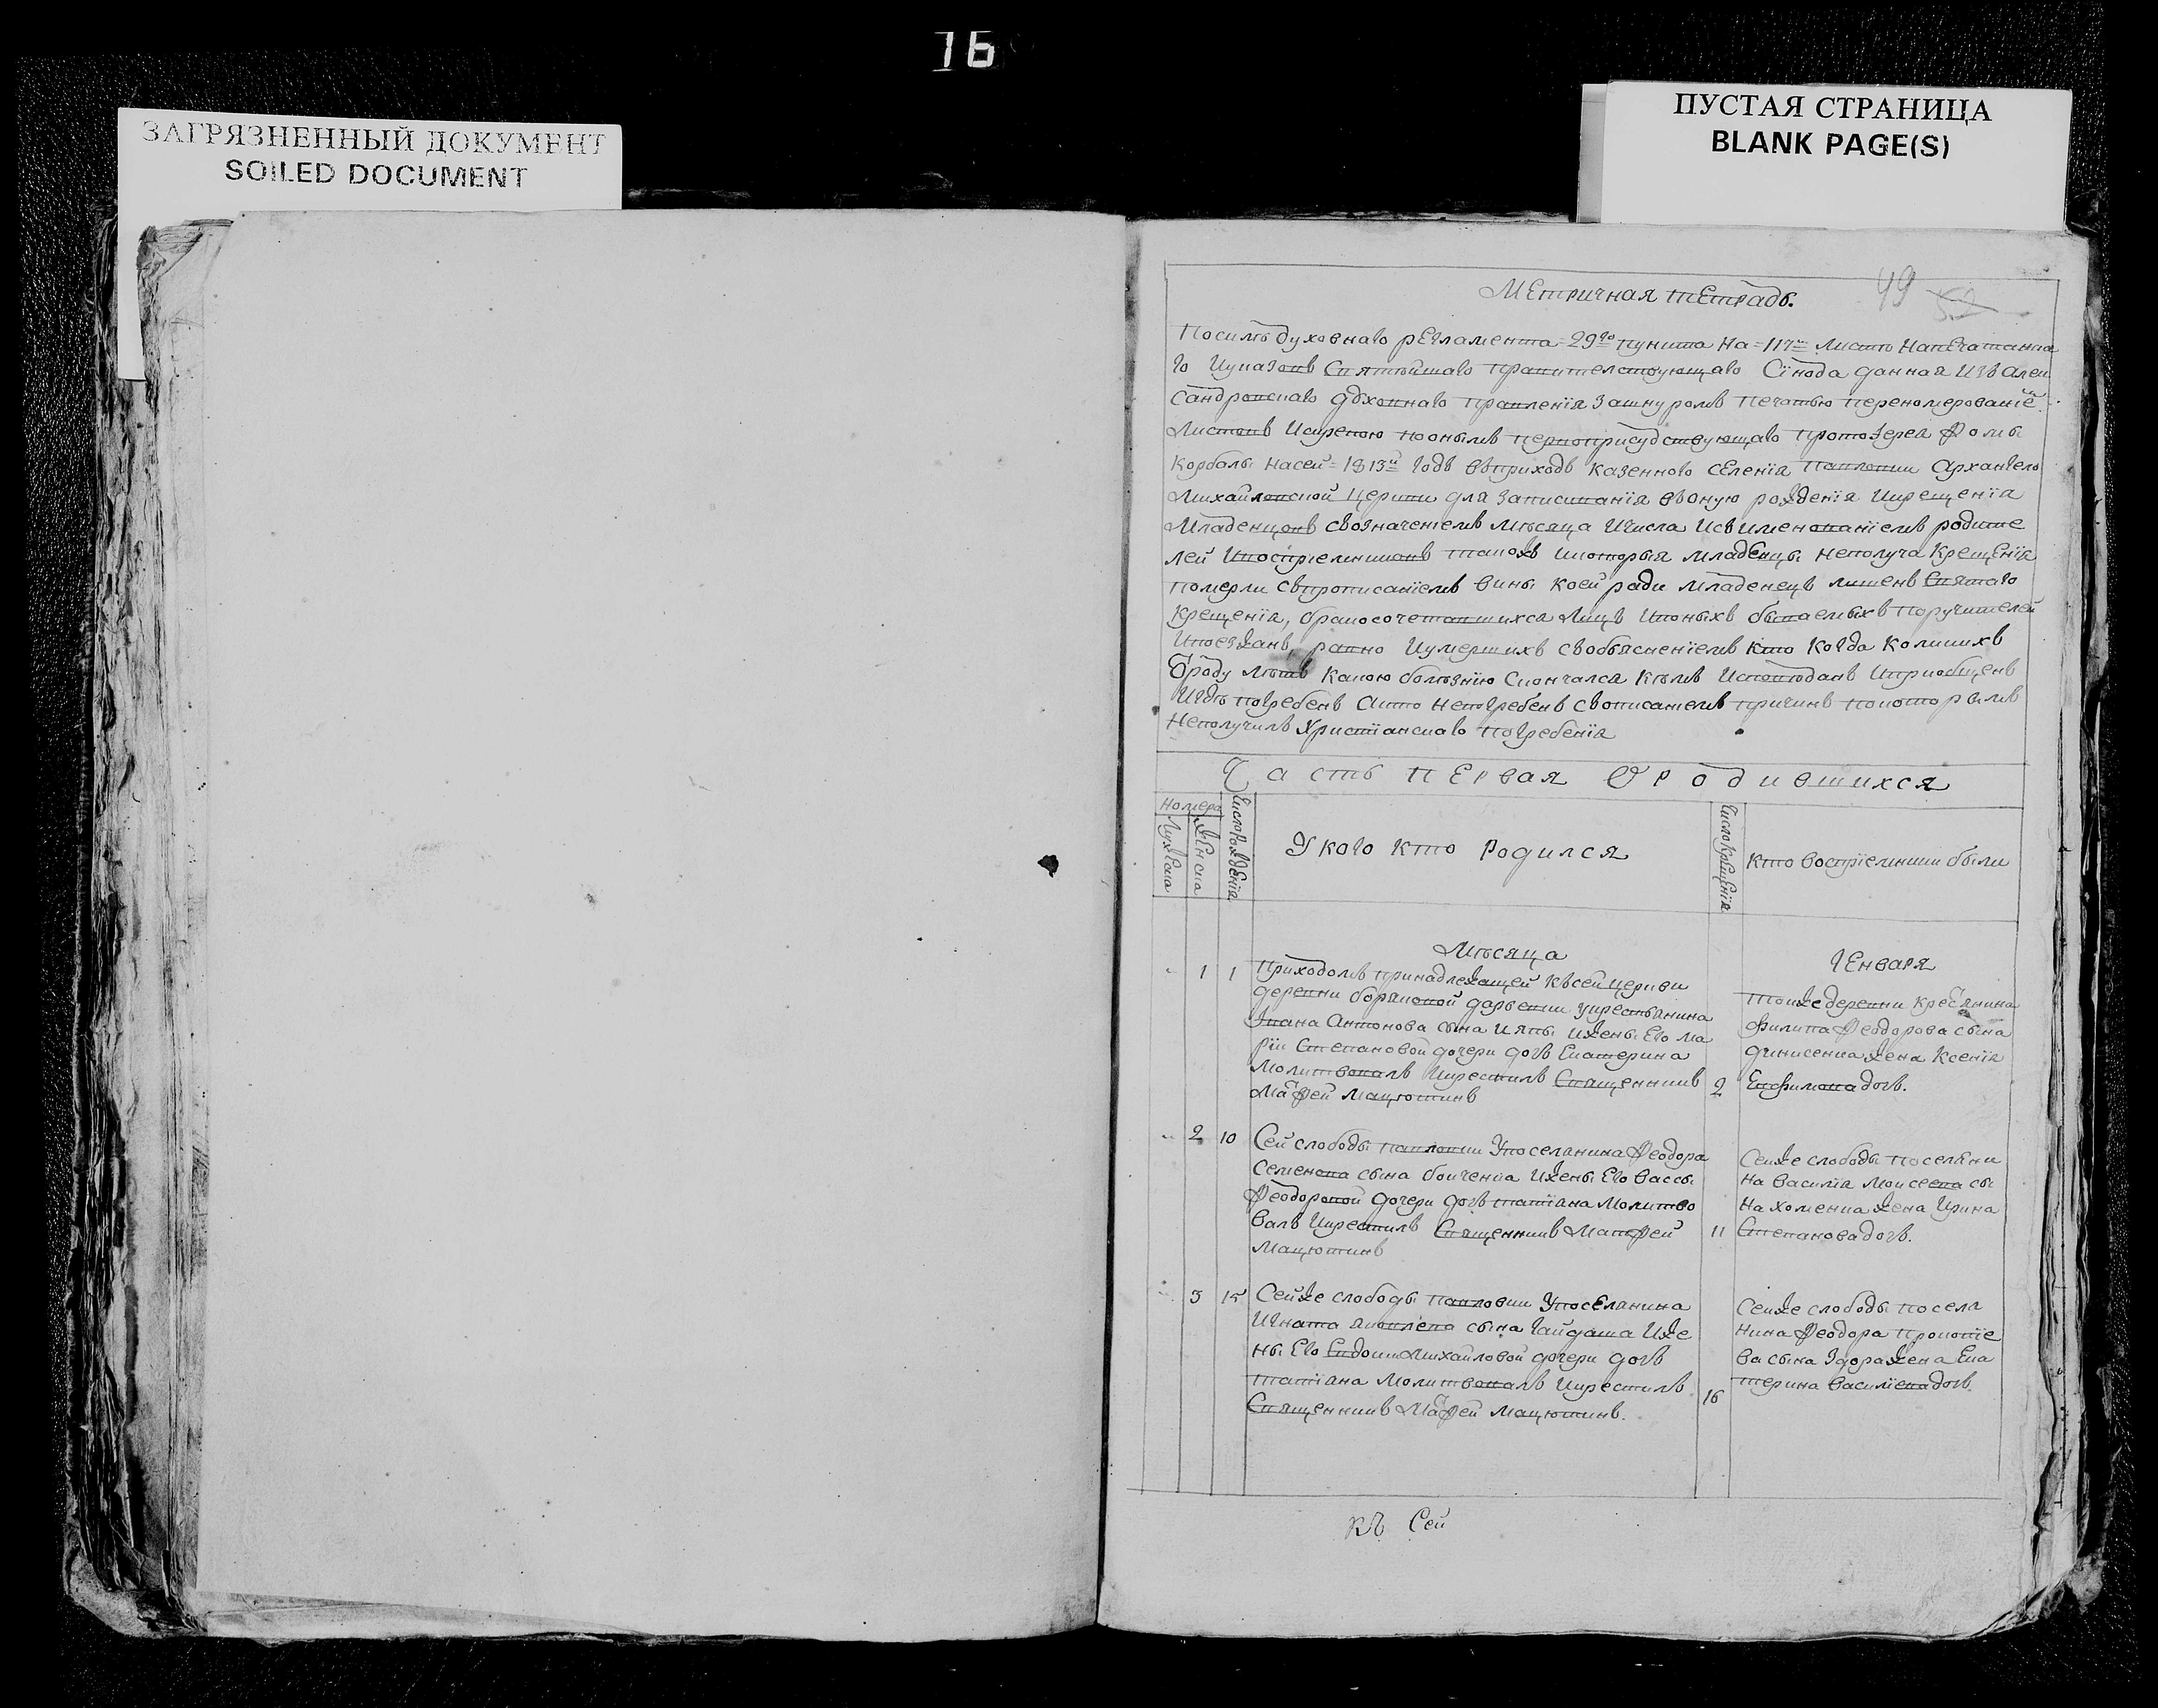 16
ЗАГРЯЗНЕННЫЙ ДОКУМЕНТ
SOILED DOCUMENT
ПУСТАЯ СТРАНИЦА
BLANK PAGE(S)
49
Метричная тетрадь.
Посилѣ духовнаго регламента 29го пункта на 117м листѣ напечатанна
го иуказовъ святѣйшаго правителствующаго Сѵнода данная изъ Алек
сандровскаго дховнаго правленїя зашнуромъ печатью переномерованїем
листовъ искрепою поонымъ первоприсудствующаго протоїерея Фомы
Корбалы насей 1813й годъ въприходъ казенного селенїя Павловки Архангело
михайловской церкви для записыванїя въоную рожденїя икрещенїя
младенцовъ съозначенїемъ мѣсяца ичисла исъименованїемъ родите
лей ивоспрїемниковъ такожъ икоторыя младенцы неполуча крещенїя
померли съпрописанїемъ вины коей ради младенецъ лишенъ святаго
крещенїя, бракосочетавшихся лицъ ивоныхъ бываемыхъ поручителей
ипоезжанъ, равно иумершихъ собъясненїемъ кто когда коликихъ
ѿроду лѣтъ какою болѣзнїю скончался кѣмъ исповѣданъ иприобщенъ
игдѣ погребенъ акто непогребенъ сописанїемъ причинъ покоторымъ
неполучилъ христїанскаго погребенїя
Часть первая ѿ родившихся
Номера
Мужеска
Женска
Число рожденїя
У кого кто родился
Число крещенїя
кто воспрїемники были
Мѣсяца
Генваря
1 1 Приходомъ принадлежащей късей церкви
деревни борᲂковой дарьевки укрестьянина
Ївана Антонова сына ияты ижены его Ма
рїи Степановой дочери дочь Екатерина
молитвовалъ икрестилъ Священникъ
Мафей Мацютинъ
2
тойже деревни крестянина
Филипа Феодорова сына
динисенка жена Ксенїя
Евфимова дочь.
2 10 Сей слободы павловки Упоселянина Феодора
Семенова сына бойченка ижены Его Вассы
Феодоровой дочери дочь татїана молитво
валъ икрестилъ Священникъ Матфей
Мацютинъ
11
Сейже слободы поселяни
на Василїя Моисеева сы
на хоменка жена Ирина
Степанова дочь.
3 15 Сейже слободы павловки Упоселянина
Игната Яковлева сына гайдаша иже
ны Его Евдокии Михайловой дочери дочь
татїана молитвовалъ икрестилъ
Священникъ Мафей Мацютинъ.
16
Сейже слободы поселя
нина Феодора Прокопїе
ва сына Здора жена Ека
терина Василїева дочь.
Сей